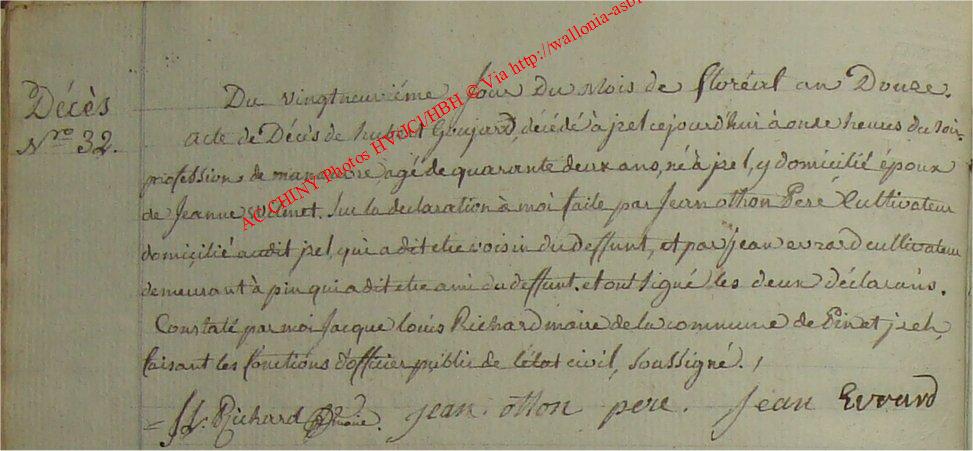 Décès
Nro 32.
Du vingtneuviéme Jour Du Mois de floréal an Douze.
acte de Décès de hubert Goujard, décédé à jzel cejourd'hui à onze heures du soir
profession de manœuvre, âgé de quarante deux ans, né à jzel, y domicilié époux
de Jeanne. Sur la declaration à moi faite par Jean othon Pere Cultivateur
domicilié audit jzel, qui a dit etre voisin du deffunt, et par jean evrard cultivateur
demeurant à pin qui a dit etre ami du deffunt. et ont signé les deux déclarans.
Constaté par moi Jacque louis Richard maire de la commune de Pin et jzel,
faisant les fonctions d'officier public de l'état civil, soussigné.
JL: Richard maire. jean othon pere. Jean Evrard
AC CHINY Photos HVJC)/HBH © Via http://wallonia-asbl